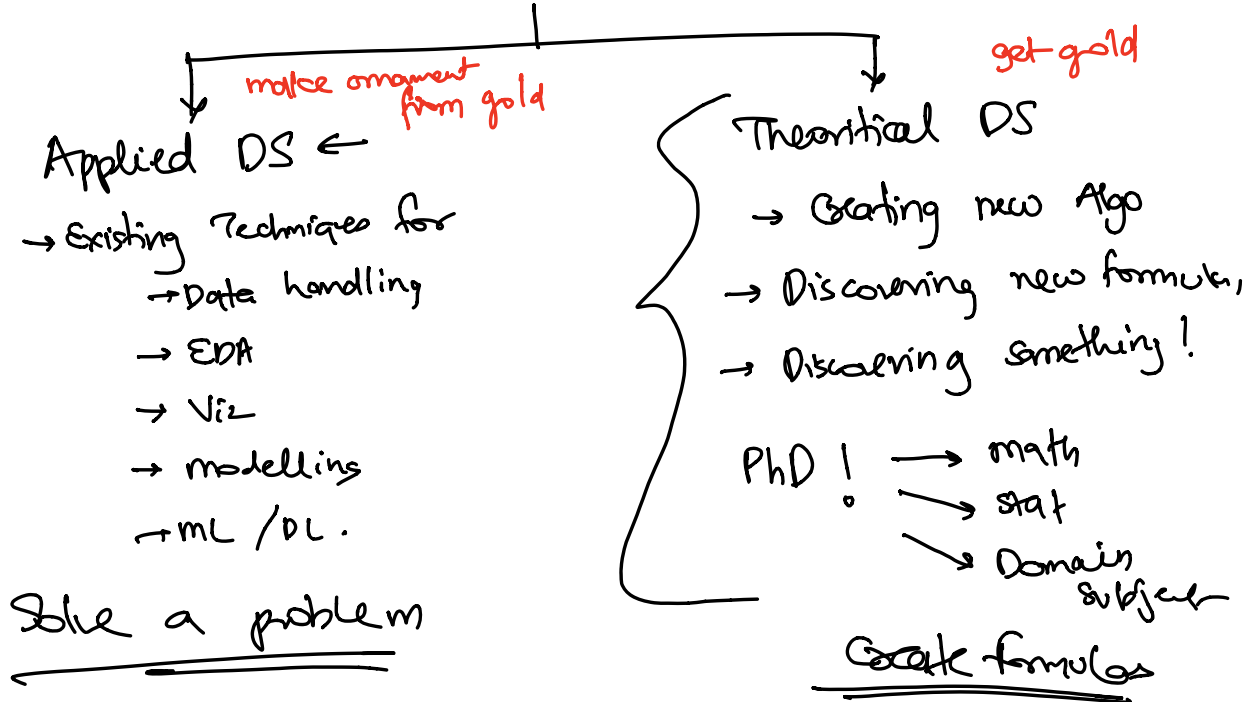 make ornament
from gold
Applied DS ←
→ Existing Techniques for
→ Data handling
→ EDA
→ Viz
→ modelling
→ ML / DL.
Solve a problem
get gold
Theoritical DS
→ Creating new Algo
→ Discovering new formula,
→ Discovering something!
PhD! → math
→ stat
→ Domain
subject
Create formulas